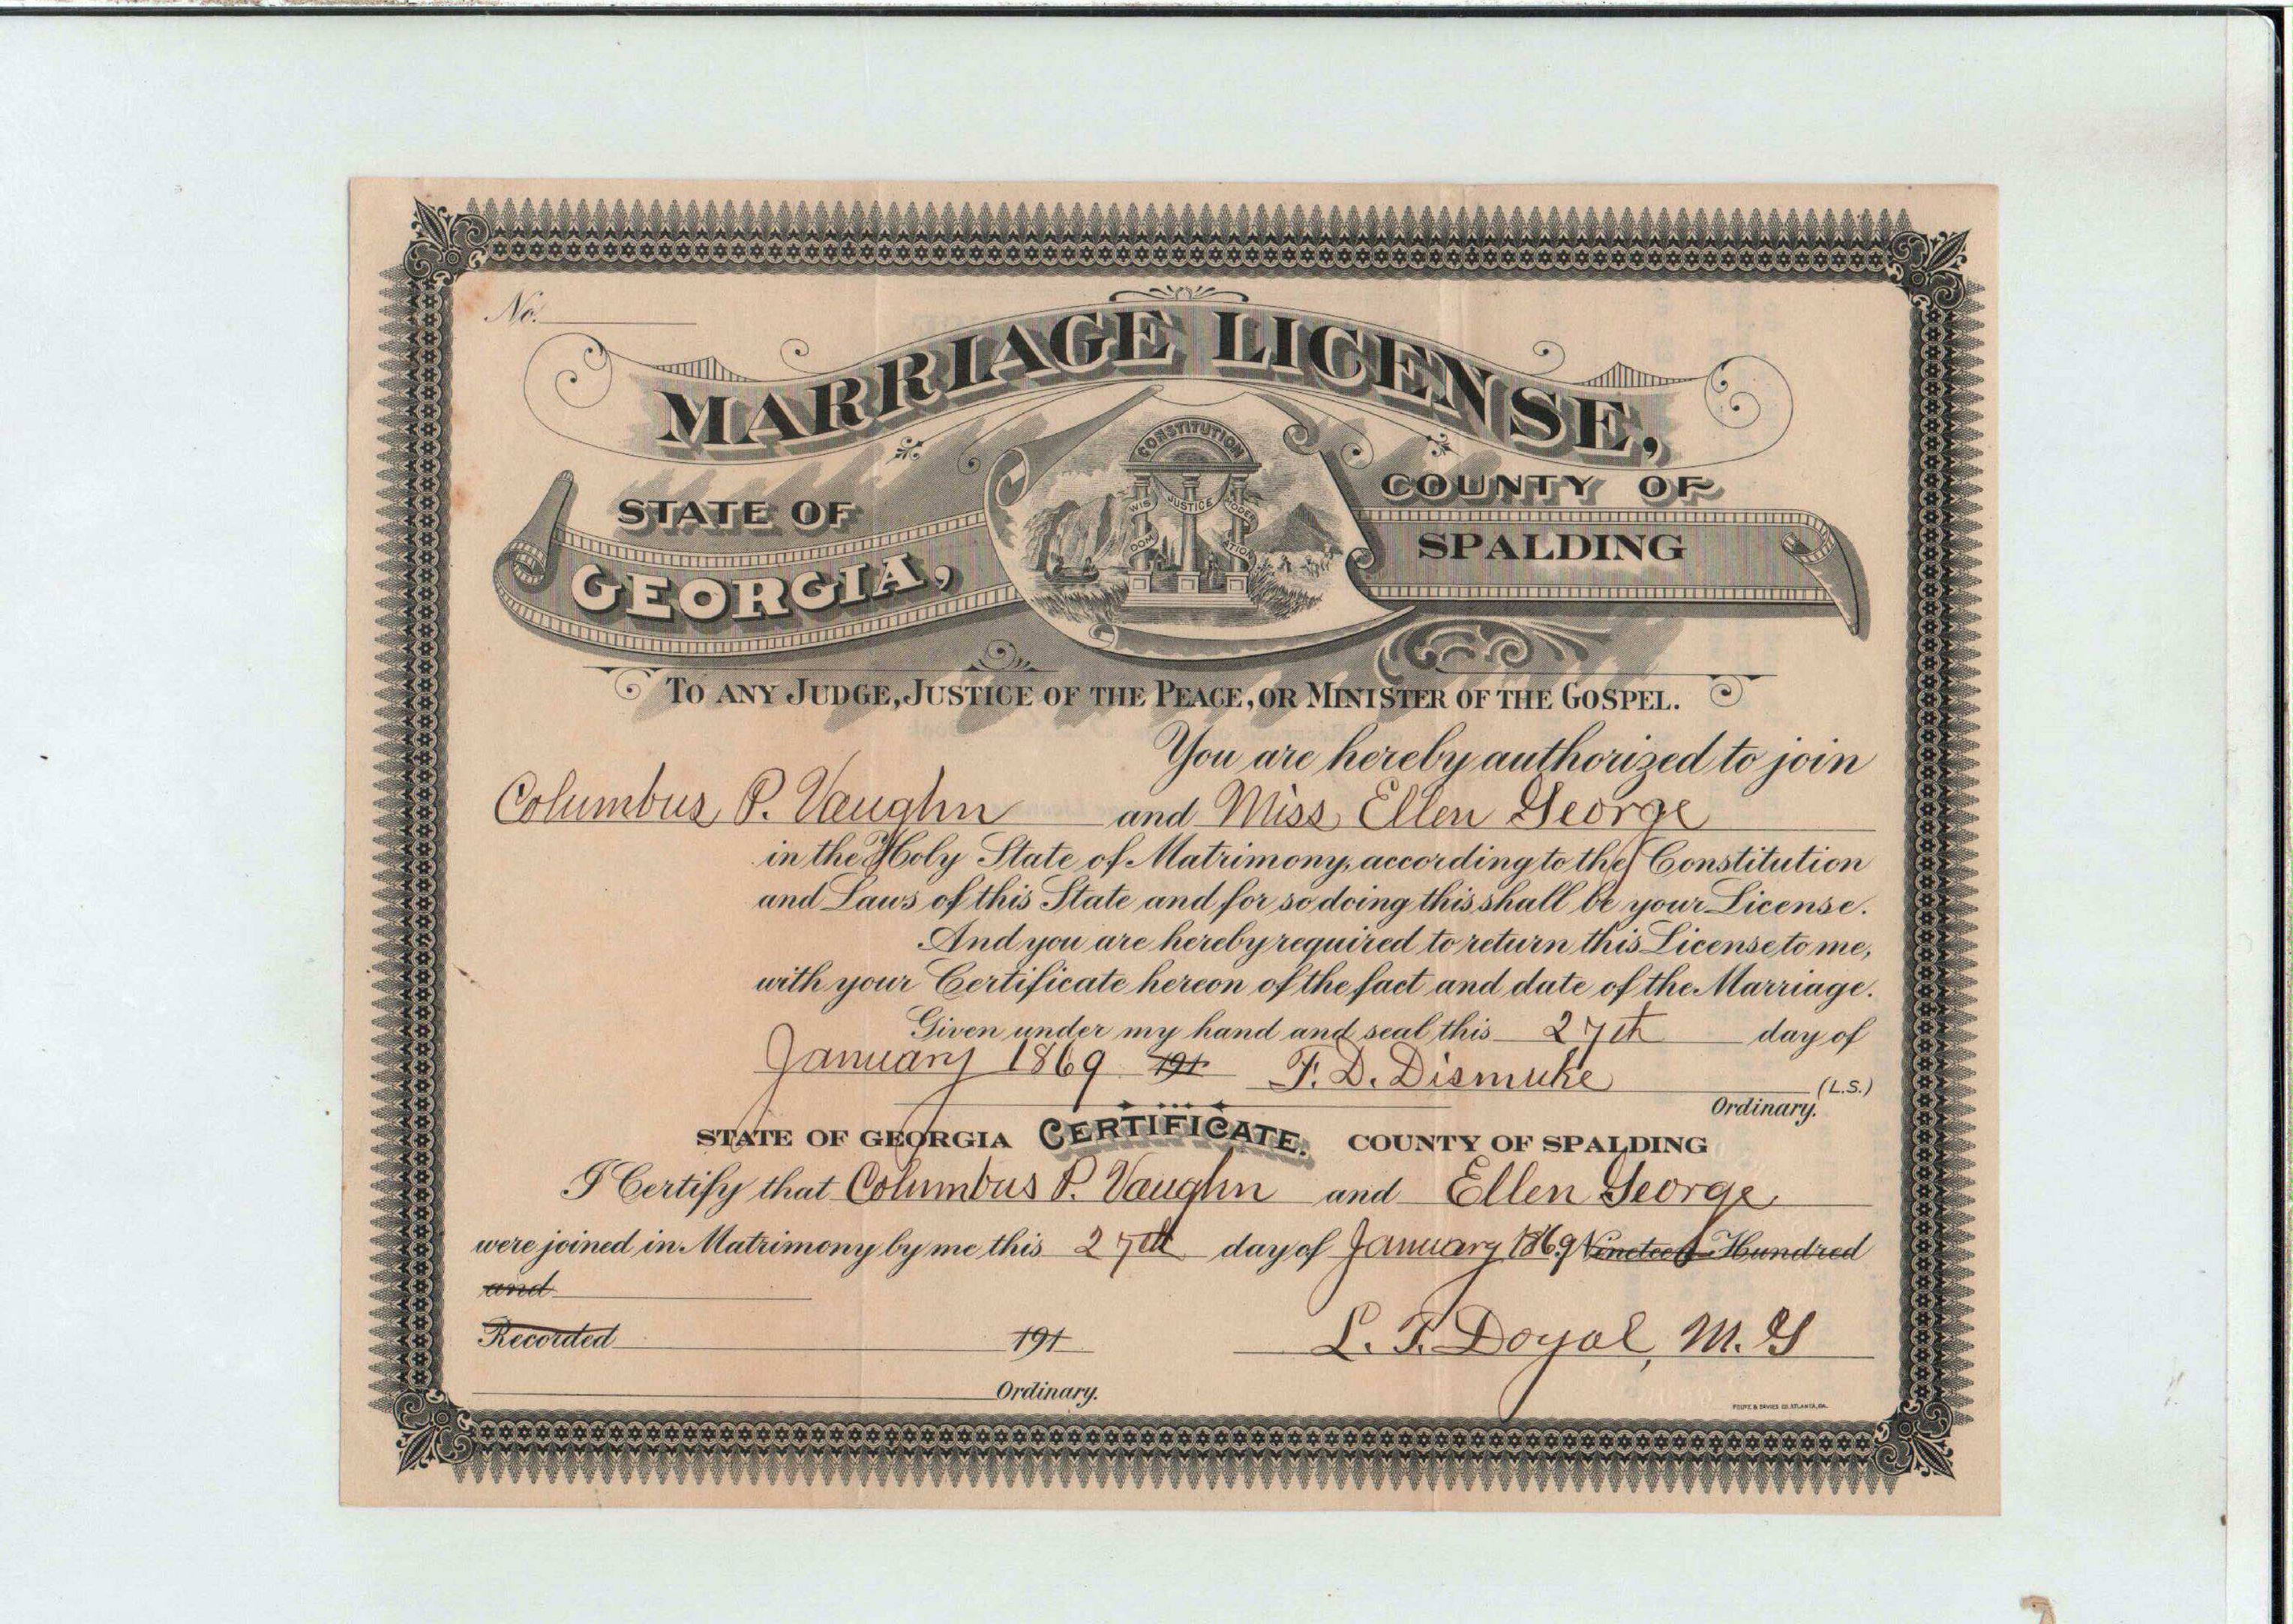 No.
MARRIAGE LICENSE,
STATE OF
GEORGIA,
CONSTITUTION
WIS DOM
JUSTICE
MODER ATION
COUNTY OF
SPALDING
TO ANY JUDGE, JUSTICE OF THE PEACE, OR MINISTER OF THE GOSPEL.
You are hereby authorized to join
Columbus P. Vaughn and Miss Ellen George
in the Holy State of Matrimony, according to the Constitution
and Laws of this State and for so doing this shall be your License.
And you are hereby required to return this License to me,
with your Certificate hereon of the fact and date of the Marriage.
Given under my hand and seal this 27th day of
January 1869 191 F. D. Dismuke (L.S.)
Ordinary.
STATE OF GEORGIA CERTIFICATE. COUNTY OF SPALDING
I Certify that Columbus P. Vaughn and Ellen George
were joined in Matrimony by me this 27th day of January 1869 Nineteen Hundred
and
Recorded 191 L. T. Doyal, M. G
Ordinary.